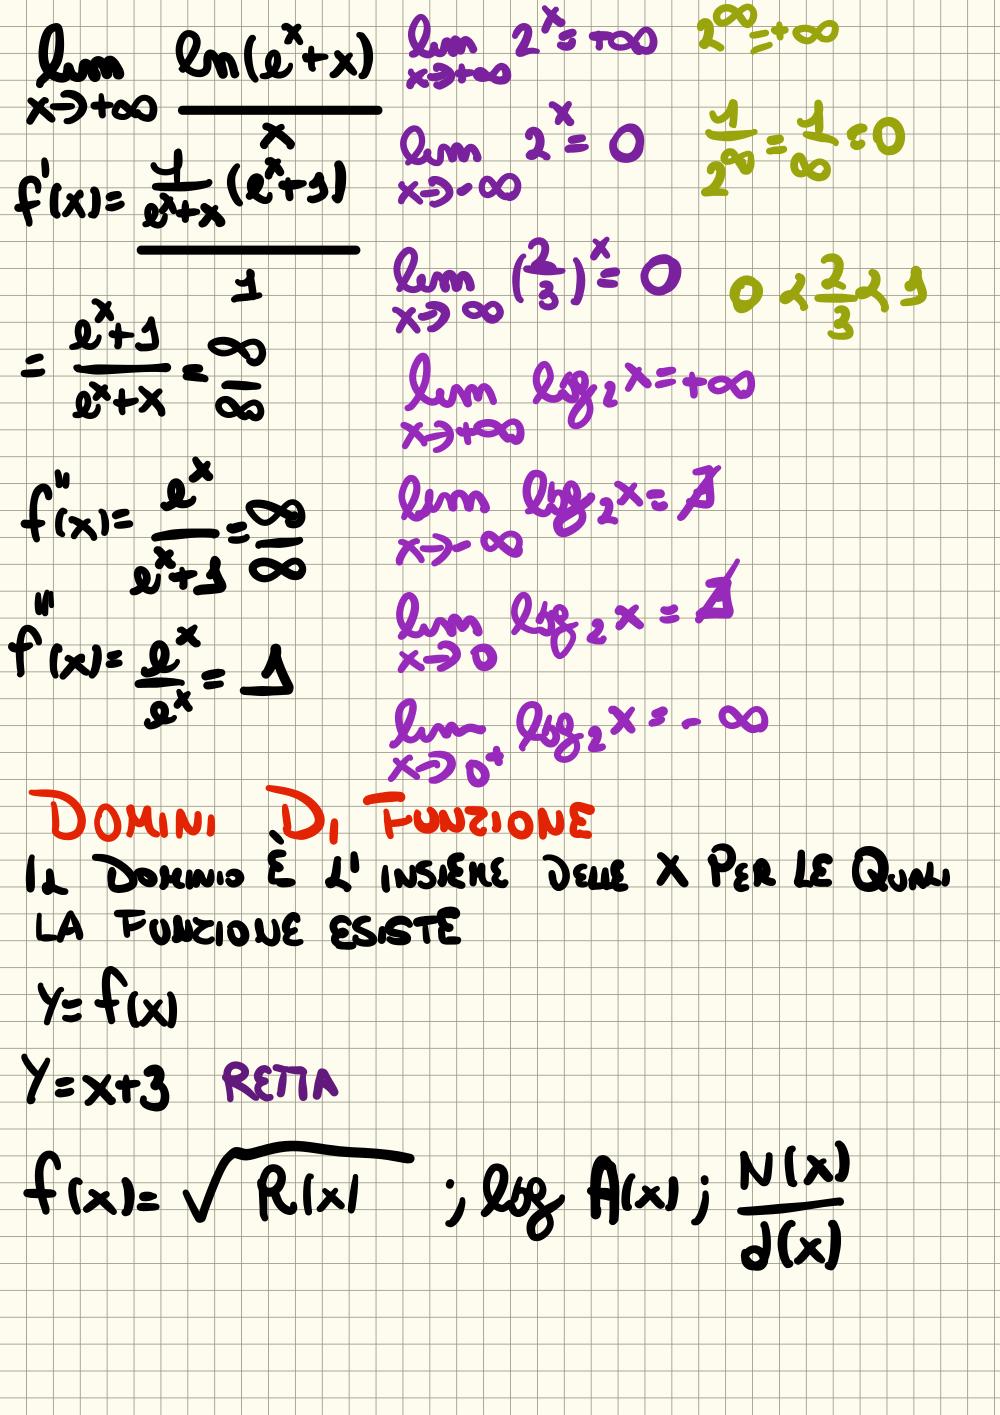 lim x→+∞ ln(e^x+x)/x
f'(x)= (1/(e^x+x) (e^x+1))/1
= (e^x+1)/(e^x+x) = ∞/∞
f''(x)= e^x/(e^x+1) = ∞/∞
f'''(x)= e^x/e^x = 1
lim x→+∞ 2^x = +∞
2^∞ = +∞
lim x→-∞ 2^x = 0
1/2^∞ = 1/∞ = 0
lim x→∞ (2/3)^x = 0
0 < 2/3 < 1
lim x→+∞ log₂ x = +∞
lim x→-∞ log₂ x = ∄
lim x→0 log₂ x = ∄
lim x→0⁺ log₂ x = -∞
DOMINI DI FUNZIONE
IL DOMINIO È L'INSIEME DELLE X PER LE QUALI
LA FUNZIONE ESISTE
Y=f(x)
Y=x+3 RETTA
f(x)= √R(x) ; log A(x) ; N(x)/d(x)